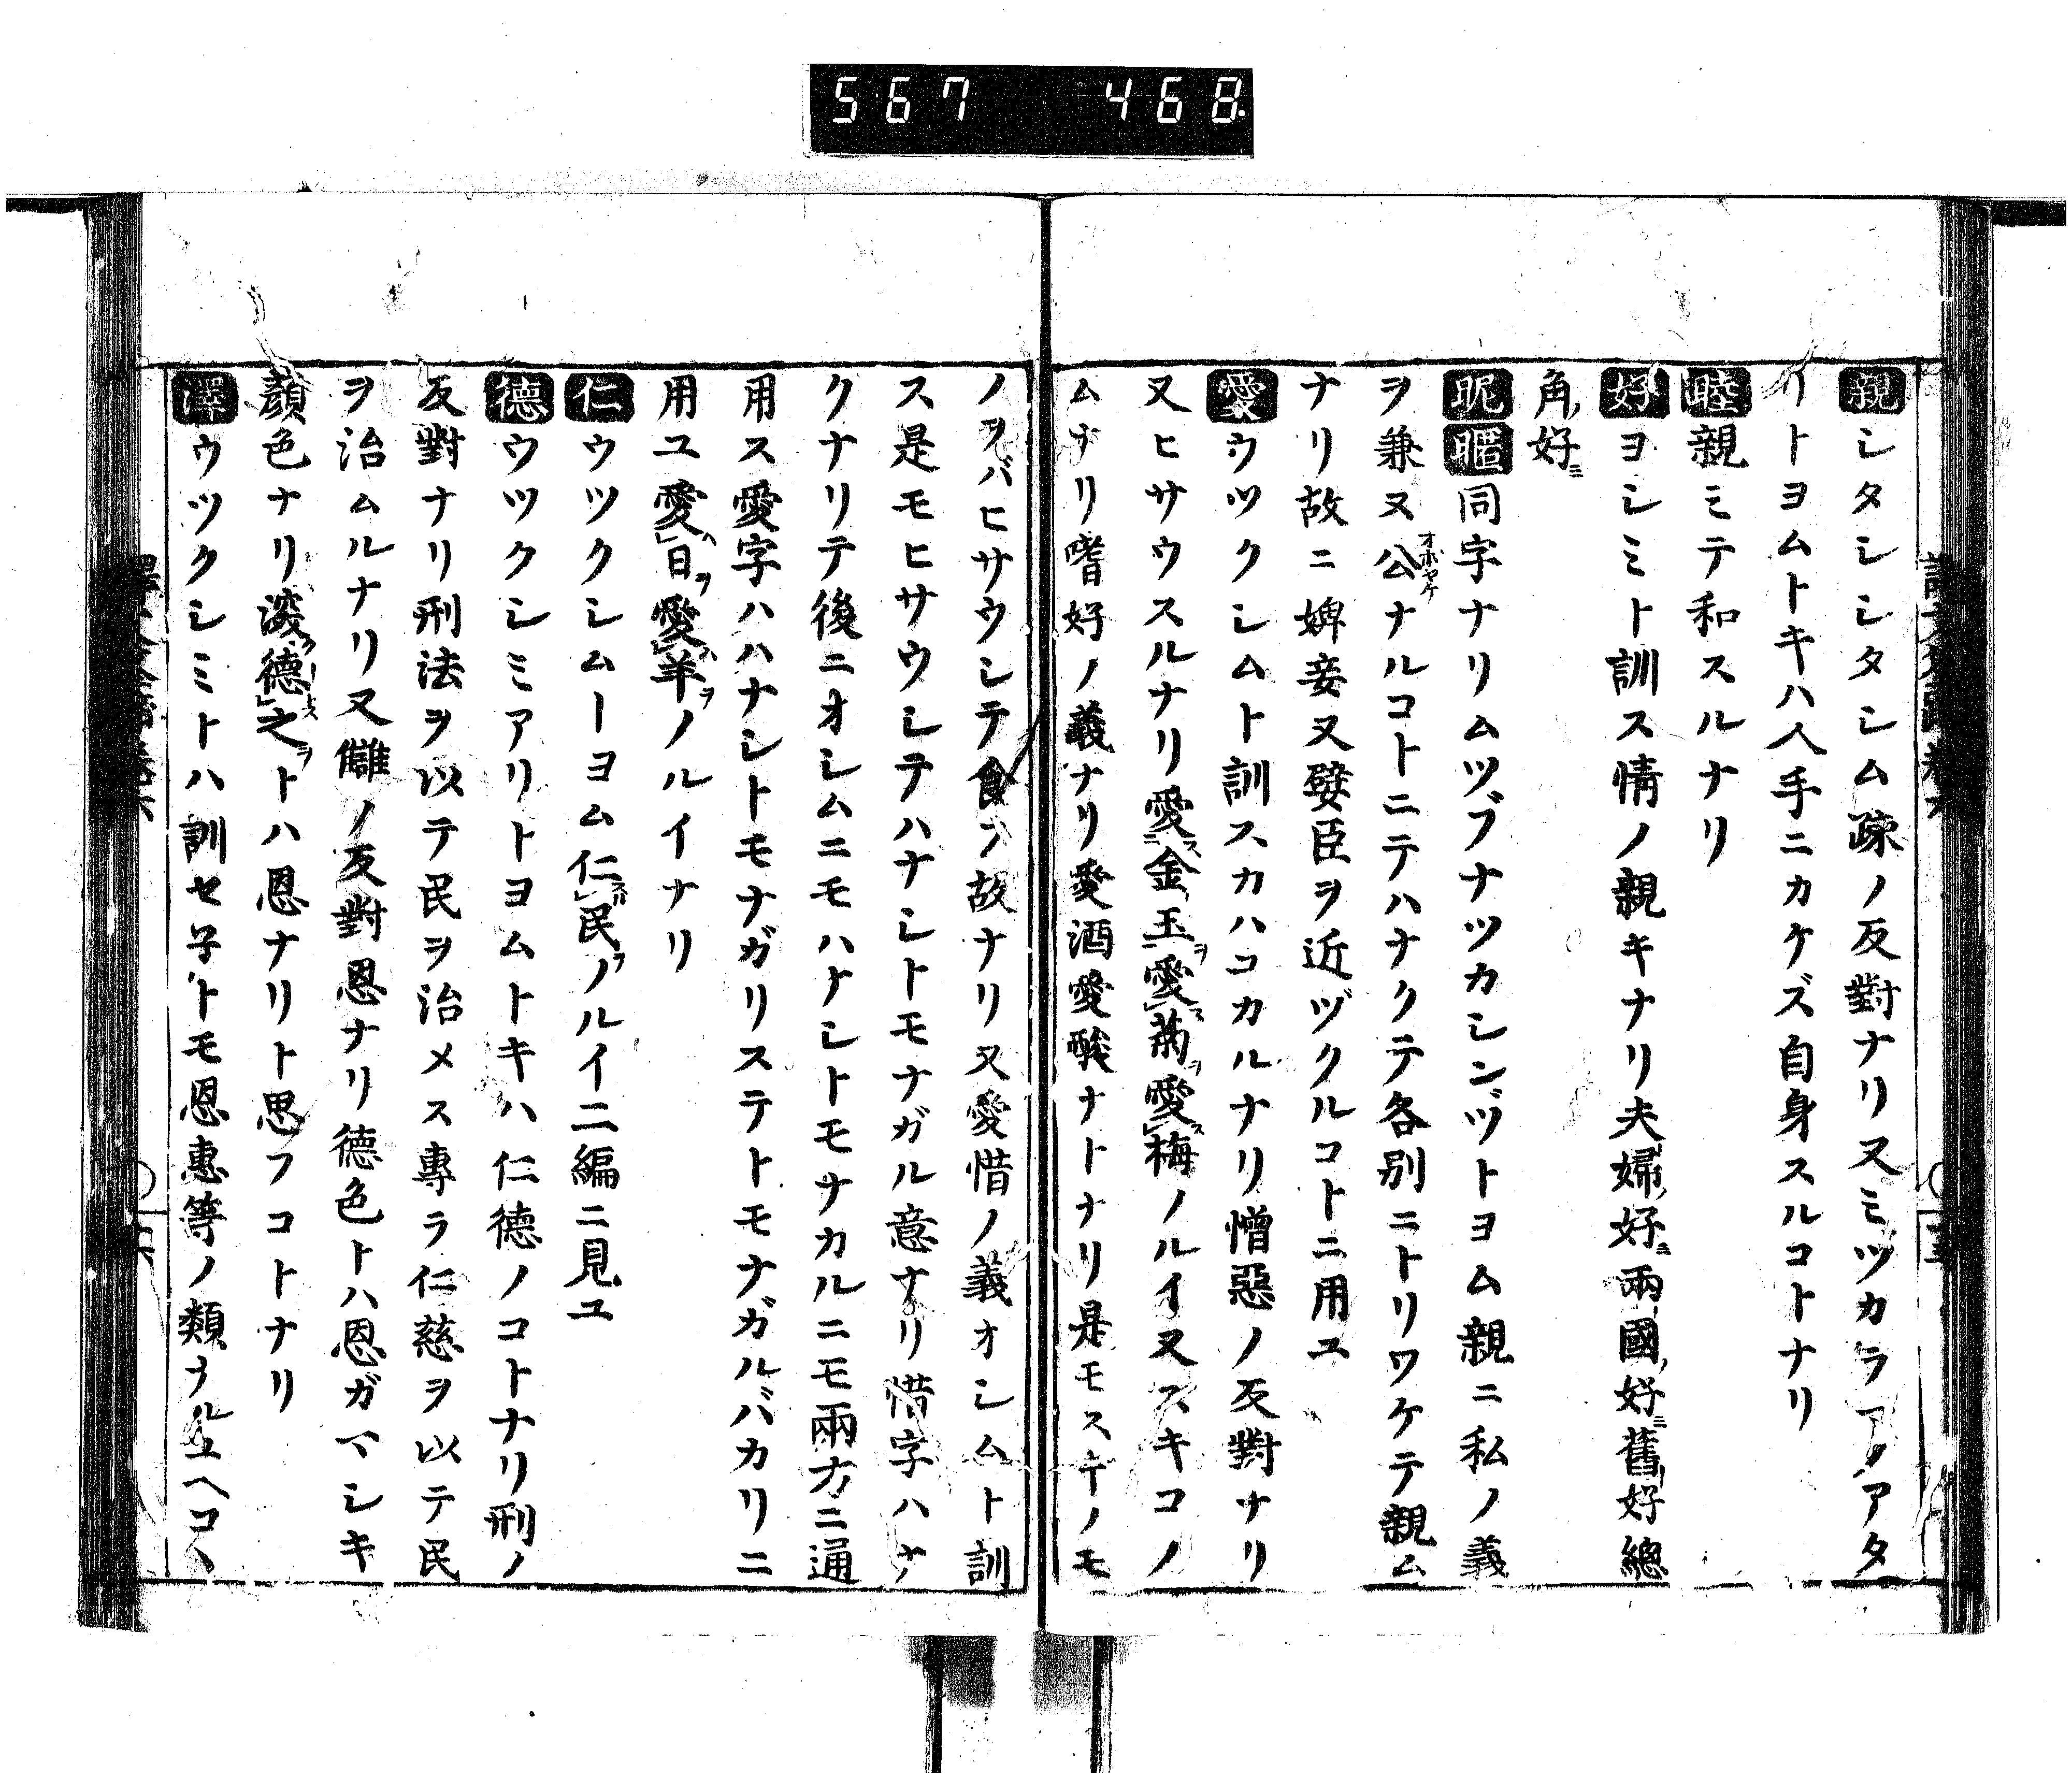 567 468
親シタシシタシム疎ノ反對ナリ又ミツカラアノアタ
リトヨムトキハ人手ニカケズ自身スルコトナリ
睦親ミテ和スルナリ
好ヨシミト訓ス情ノ親キナリ夫婦好兩國好舊好總
角好
昵暱同字ナリムツブナツカシンヅトヨム親ニ私ノ義
ヲ兼ヌ公ナルコトニテハナクテ各別ニトリワケテ親ム
ナリ故ニ婢妾又嬖臣ヲ近ヅクルコトニ用ユ
愛ウツクシムト訓スカハユカルナリ憎惡ノ反對ナリ
又ヒサウスルナリ愛金玉愛菊愛梅ノルイ又スキコノ
ムナリ嗜好ノ義ナリ愛酒愛酸ナトナリ是モスキノモ
ノヲバヒサウシテ食フ故ナリ又愛惜ノ義オシムト訓
ス是モヒサウシテハナシトモナガル意ナリ惜字ハナ
クナリテ後ニオシムニモハナシトモナカルニモ兩方ニ通
用ス愛字ハハナシトモナガリステトモナガルバカリニ
用ユ愛日愛羊ノルイナリ
仁ウツクシムーヨム仁民ノルイ二編ニ見ユ
德ウツクシミアリトヨムトキハ仁德ノコトナリ刑ノ
反對ナリ刑法ヲ以テ民ヲ治メス專ラ仁慈ヲ以テ民
ヲ治ムルナリ又讎ノ反對恩ナリ德色トハ恩ガマシキ
顏色ナリ淡德之トハ恩ナリト思フコトナリ
澤ウツクシミトハ訓セ子トモ恩惠等ノ類ナル上ヘコヽ